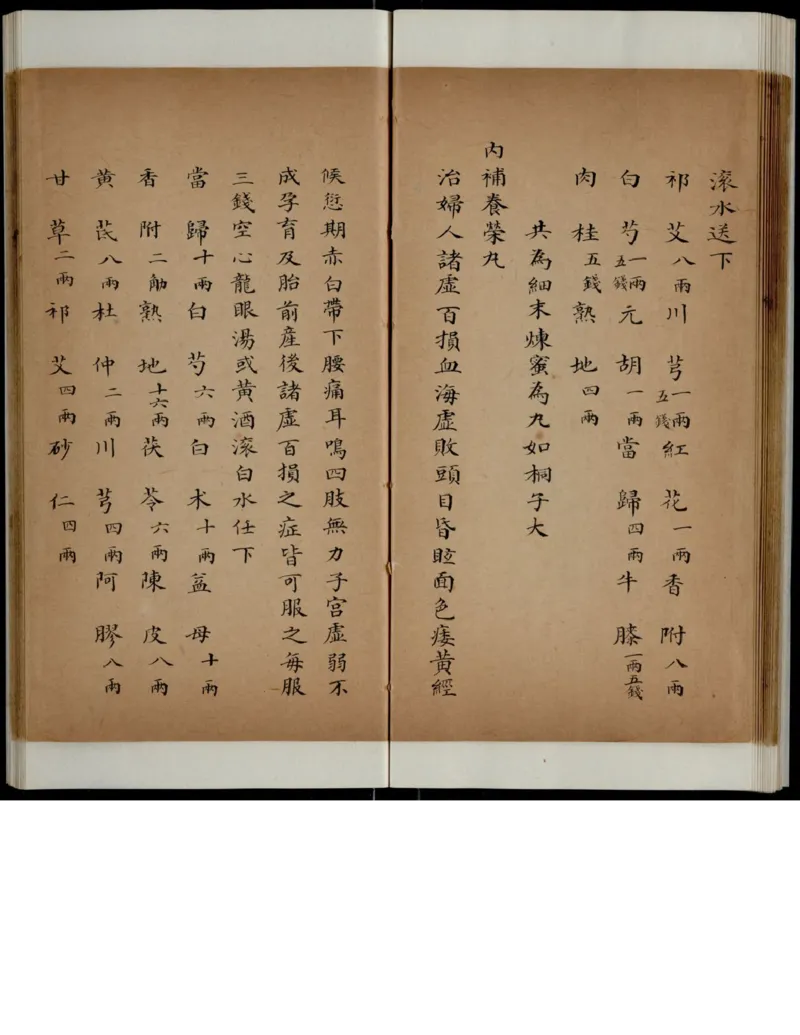 滾水送下
祁艾八兩川芎一兩五錢紅花一兩香附八兩
白芍一兩五錢元胡一兩當歸四兩牛膝一兩五錢
肉桂五錢熟地四兩
共為細末煉蜜為丸如桐子大
內補養榮丸
治婦人諸虛百損血海虛敗頭目昏眩面色痿黃經
候愆期赤白帶下腰痛耳鳴四肢無力子宮虛弱不
成孕育及胎前產後諸虛百損之症皆可服之每服
三錢空心龍眼湯或黃酒滾白水任下
當歸十兩白芍六兩白朮十兩益母十兩
香附二觔熟地十六兩茯苓六兩陳皮八兩
黃芪八兩杜仲二兩川芎四兩阿膠八兩
甘草二兩祁艾四兩砂仁四兩